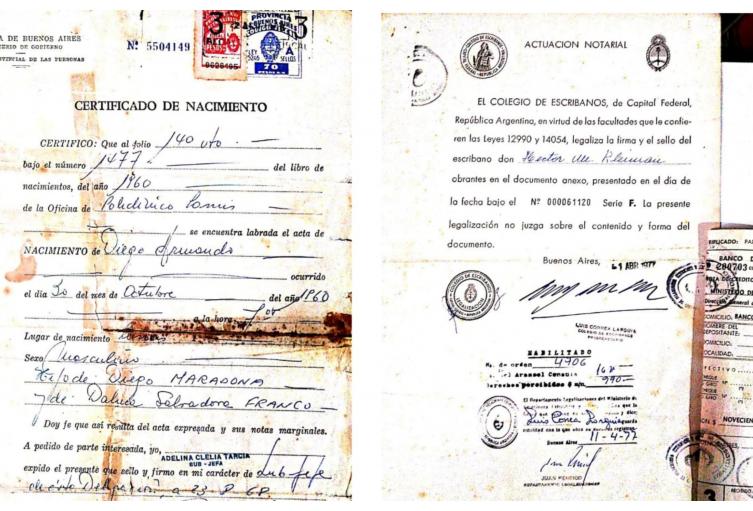 A DE BUENOS AIRES
TERIO DE GOBIERNO
OVINCIAL DE LAS PERSONAS
Nº 5504149
3
PROVINCIA
BUENOS AIRES
3
LEY
A
SELLOS
70
CERTIFICADO DE NACIMIENTO
CERTIFICO: Que al folio 140 vto.
bajo el número 1477 del libro de
nacimientos, del año 1960
de la Oficina de Policlínico Lanús
se encuentra labrada el acta de
NACIMIENTO de Diego Armando
ocurrido
el día 30 del mes de Octubre del año 1960
a la hora
Lugar de nacimiento
Sexo Masculino
Hijo de Diego MARADONA
y de Dalma Salvadora FRANCO
Doy fe que así resulta del acta expresada y sus notas marginales.
A pedido de parte interesada, yo, ADELINA CLELIA TARCIA
SUB - JEFA
expido el presente que sello y firmo en mi carácter de Sub Jefe
a 23 8 68
ACTUACION NOTARIAL
EL COLEGIO DE ESCRIBANOS, de Capital Federal,
República Argentina, en virtud de las facultades que le confie-
ren las Leyes 12990 y 14054, legaliza la firma y el sello del
escribano don Hector M. Kleiman
obrantes en el documento anexo, presentado en el día de
la fecha bajo el Nº 000061120 Serie F. La presente
legalización no juzga sobre el contenido y forma del
documento.
Buenos Aires, 1 ABR 1977
COLEGIO DE ESCRIBANOS
LEGALIZACIONES
LUIS CORREA LARGUIA
COLEGIO DE ESCRIBANOS
PROSECRETARIO
HABILITADO
Nº de orden 4706
del Arancel Consular 168
Derechos percibidos $ m/n 990
El Departamento Legalizaciones del Ministerio de
que la
y dice:
Luis Correa Larguia guarda
Buenos Aires 11-4-77
DEPARTAMENTO LEGALIZACIONES
BANCO D
200703
MINISTERIO DE
General
DOMICILIO: BANCO
NOMBRE DEL
DEPOSITANTE:
DOMICILIO:
LOCALIDAD:
NOVECIEN
3